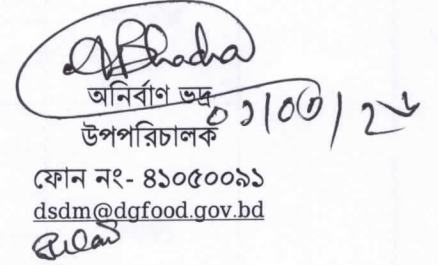 অনির্বাণ ভদ্র
উপপরিচালক
ফোন নং- ৪১০৫০০৯১
dsdm@dgfood.gov.bd